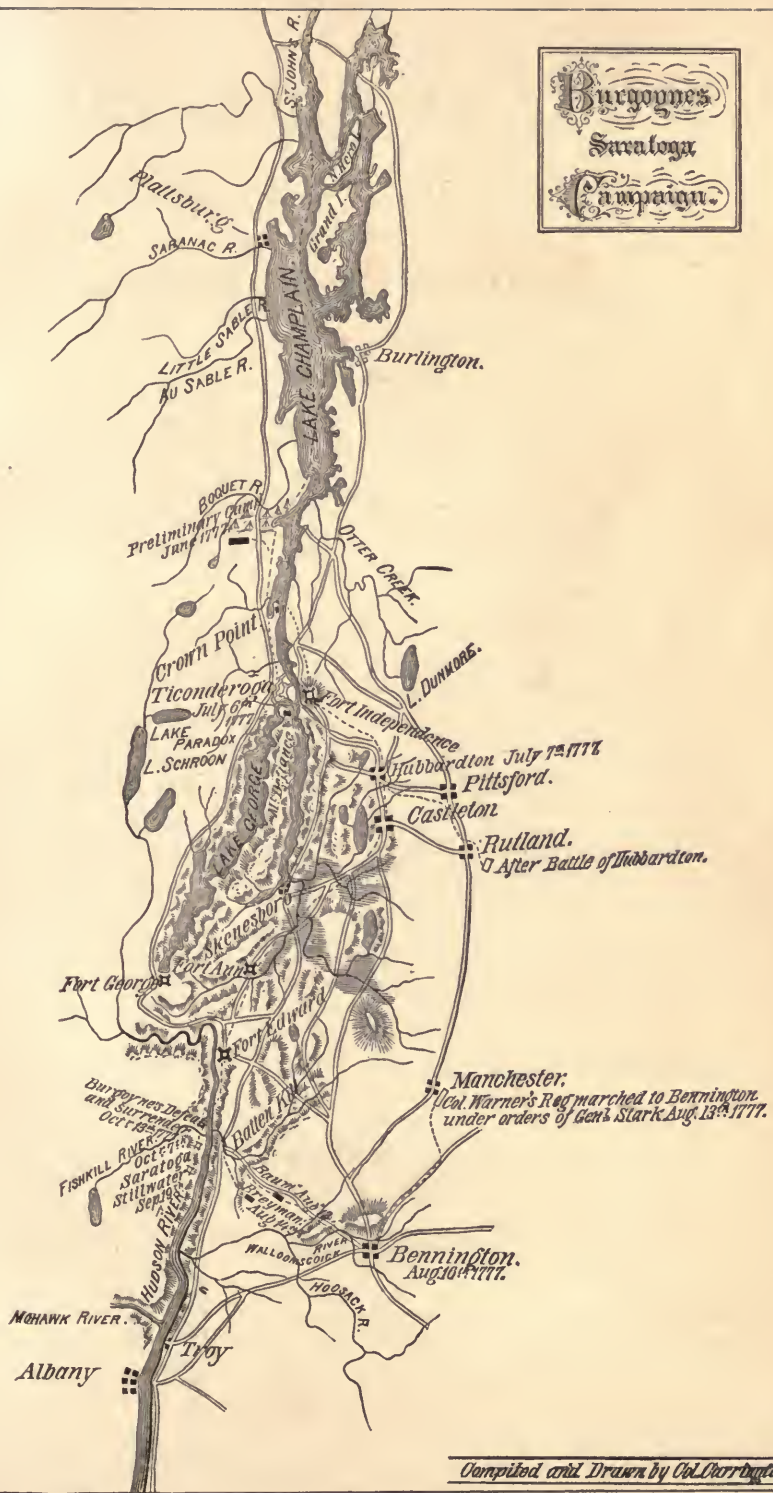 Burgoynes
Saratoga
Campaign.
ST JOHN'S R.
N. Hero I.
Grand I.
Plattsburg
SARANAC R.
LAKE CHAMPLAIN.
LITTLE SABLE R.
AU SABLE R.
Burlington.
BOQUET R.
Preliminary Camp
June 1777.
OTTER CREEK.
Crown Point.
L. DUNMORE.
Ticonderoga
July 6th
1777
Fort Independence
LAKE
PARADOX
L. SCHROON
Mt Defiance
LAKE GEORGE
Hubbardton July 7th 1777.
Pittsford.
Castleton
Rutland.
After Battle of Hubbardton.
Skenesboro
Fort Ann
Fort George
Fort Edward
Manchester.
Col. Warner's Reg marched to Bennington
under orders of Genl. Stark Aug. 13th 1777.
Burgoyne's Defeat
and Surrender
Octr 13th
Batten Kill
FISHKILL RIVER
Oct. 7th
Saratoga
Stillwater
Sep 19th
Baum
Breyman
HUDSON RIVER
WALLOOMSCOICK
RIVER
Bennington.
Aug 16th 1777.
HOOSACK R.
MOHAWK RIVER.
Troy
Albany
Compiled and Drawn by Col. Carrington